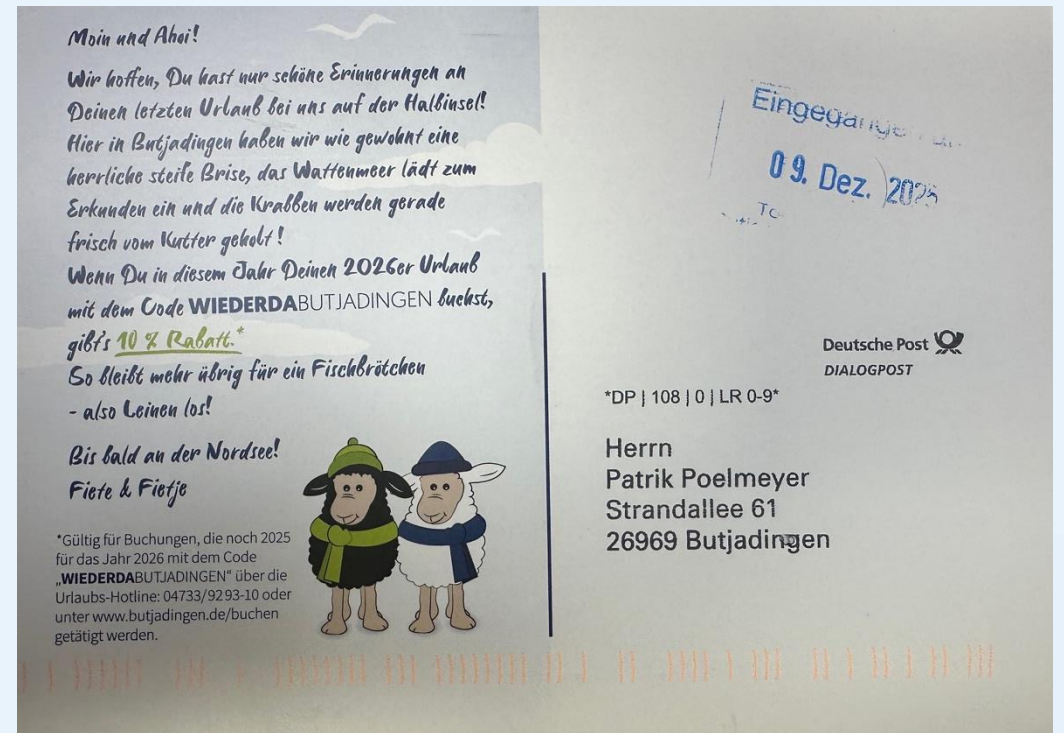 Moin und Ahoi!
Wir hoffen, Du hast nur schöne Erinnerungen an
Deinen letzten Urlaub bei uns auf der Halbinsel!
Hier in Butjadingen haben wir wie gewohnt eine
herrliche steife Brise, das Wattenmeer lädt zum
Erkunden ein und die Krabben werden gerade
frisch vom Kutter geholt!
Wenn Du in diesem Jahr Deinen 2026er Urlaub
mit dem Code WIEDERDABUTJADINGEN buchst,
gibt's 10 % Rabatt.*
So bleibt mehr übrig für ein Fischbrötchen
- also Leinen los!
Bis bald an der Nordsee!
Fiete & Fietje
*Gültig für Buchungen, die noch 2025
für das Jahr 2026 mit dem Code
„WIEDERDABUTJADINGEN“ über die
Urlaubs-Hotline: 04733/92 93-10 oder
unter www.butjadingen.de/buchen
getätigt werden.
Eingegangen
09. Dez. 2025
Deutsche Post
DIALOGPOST
*DP | 108 | 0 | LR 0-9*
Herrn
Patrik Poelmeyer
Strandallee 61
26969 Butjadingen